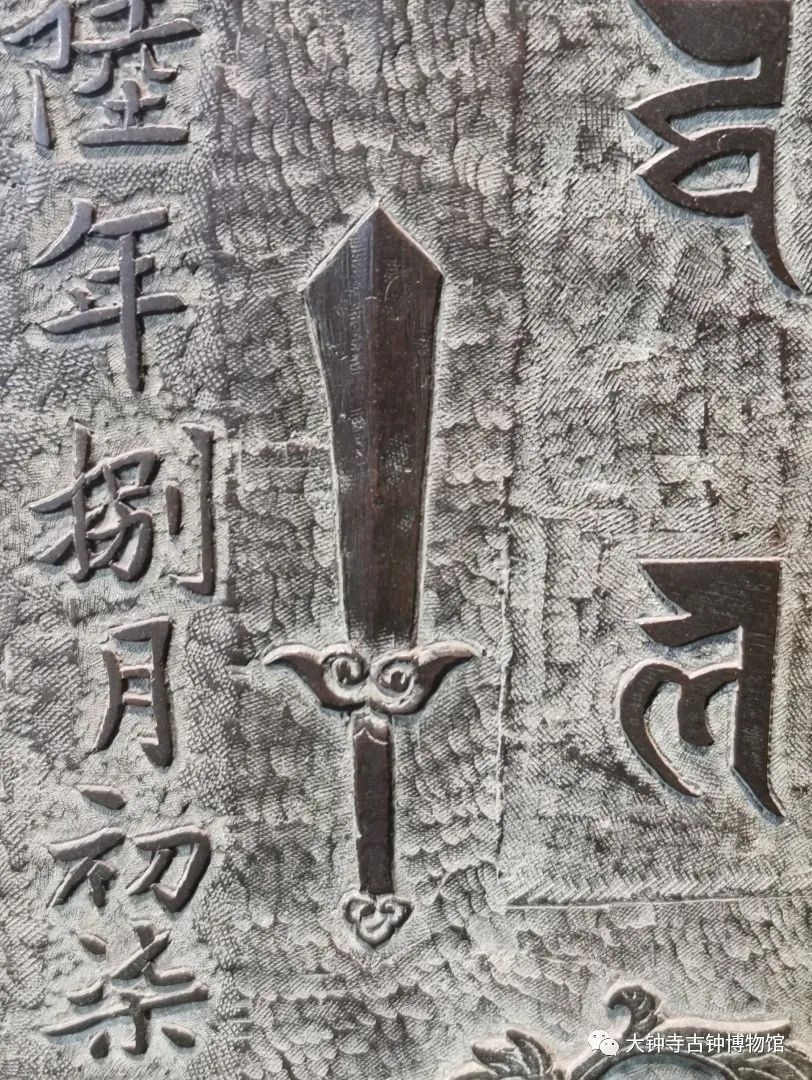 陸年捌月初柒
大钟寺古钟博物馆